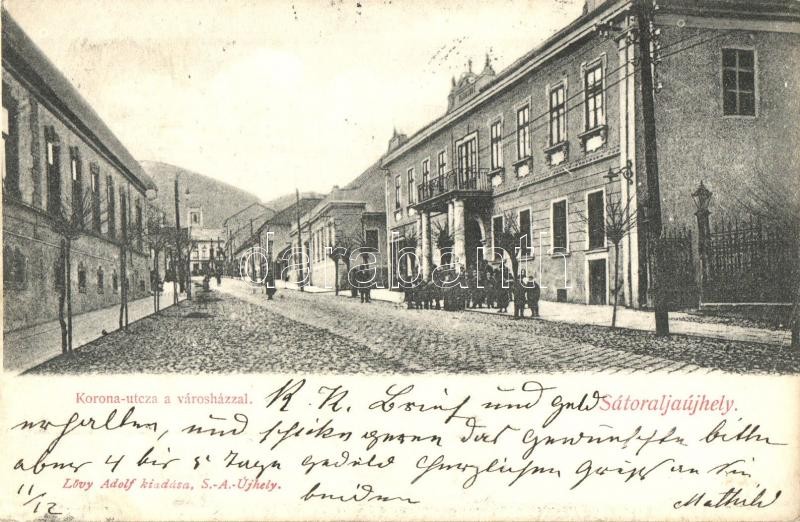 darabanth
Korona-utcza a városházzal.
Sátoraljaújhely.
K. K. Brief und Geld
erhalten, und schicke geren das Gewünschte bitte
aber 4 bis 5 Tage Geduld herzlichen Gruss an Sie
beiden
Mathild
11/12
Lövy Adolf kiadása, S.-A.-Ujhely.